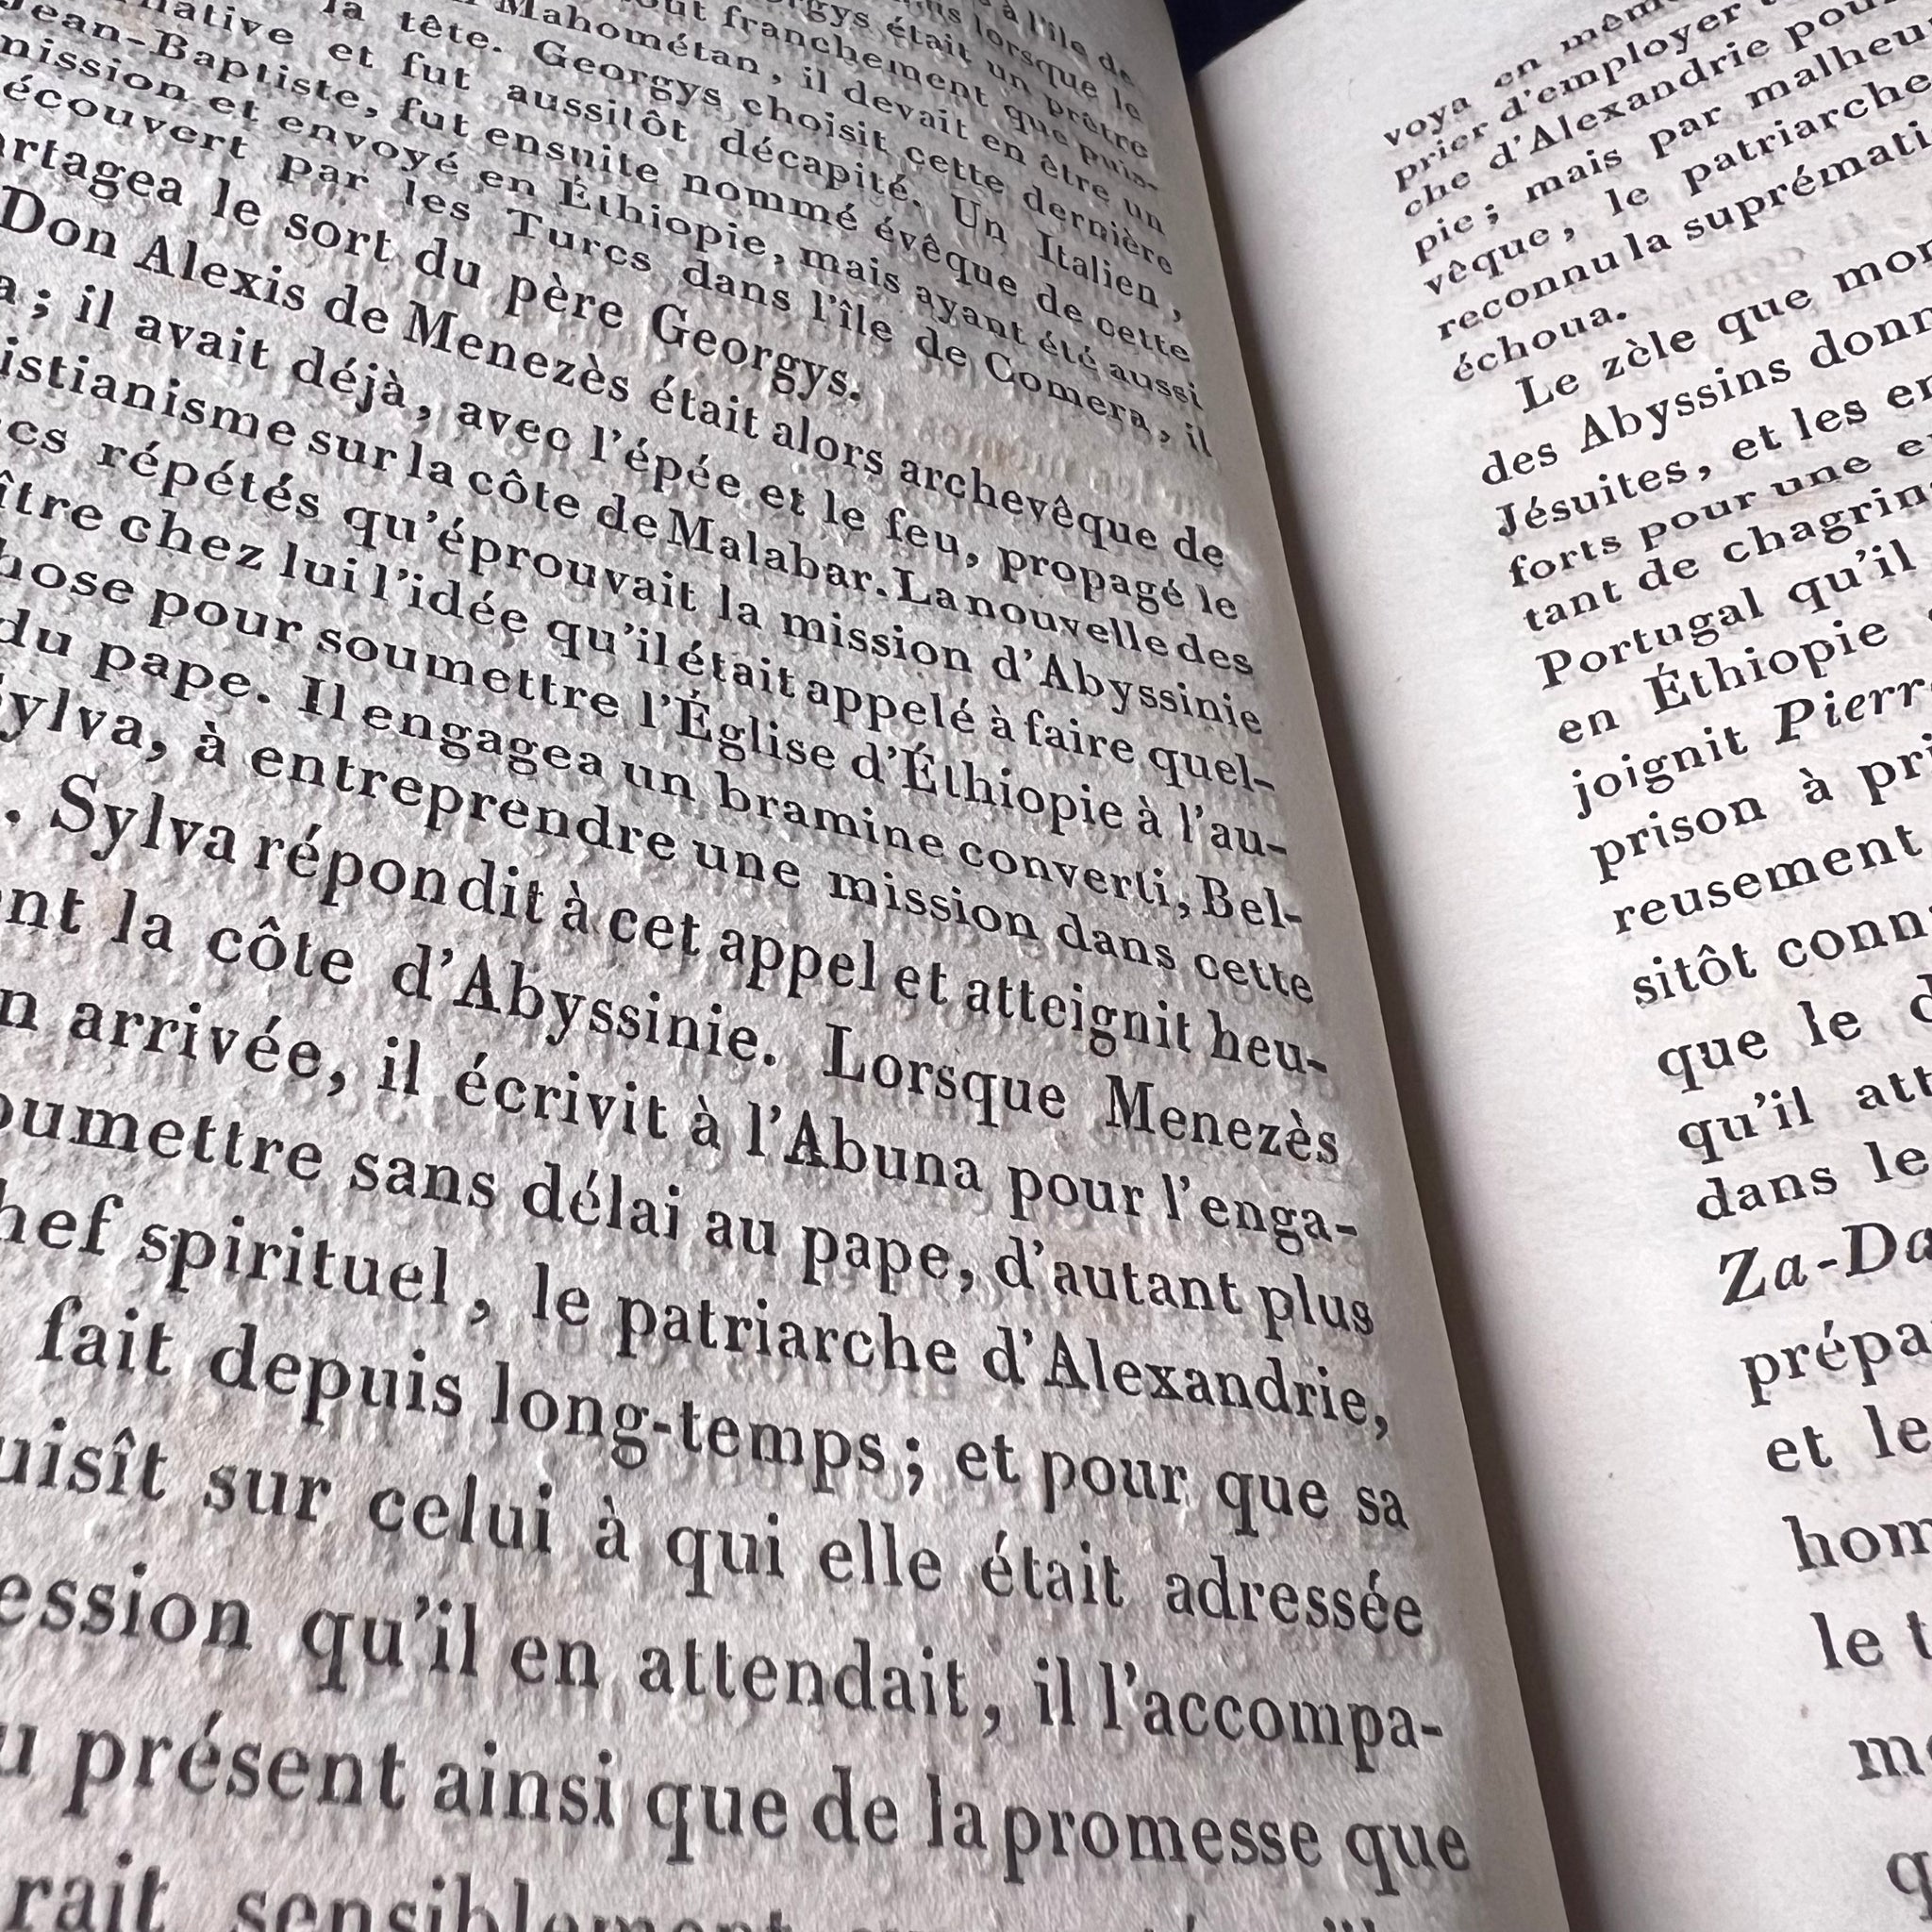 à l'île de
Georgys était lorsque le
tout franchement un prêtre
Mahométan, il devait que puis-
la tête. Georgys choisit en être un
native et fut aussitôt cette dernière
Jean-Baptiste, décapité. Un Italien,
mission et fut ensuite nommé évêque de cette
écouvert envoyé en Éthiopie, mais ayant été aussi
par les Turcs dans l'île de Comera, il
artagea le sort du père Georgys.
Don Alexis de Menezès était alors archevêque de
a; il avait déjà, avec l'épée et le feu, propagé le
istianisme sur la côte de Malabar. La nouvelle des
cs répétés qu'éprouvait la mission d'Abyssinie
ître chez lui l'idée qu'il était appelé à faire quel-
hose pour soumettre l'Église d'Éthiopie à l'au-
du pape. Il engagea un bramine converti, Bel-
Sylva, à entreprendre une mission dans cette
. Sylva répondit à cet appel et atteignit heu-
nt la côte d'Abyssinie. Lorsque Menezès
n arrivée, il écrivit à l'Abuna pour l'enga-
oumettre sans délai au pape, d'autant plus
hef spirituel, le patriarche d'Alexandrie,
fait depuis long-temps; et pour que sa
uisît sur celui à qui elle était adressée
ession qu'il en attendait, il l'accompa-
u présent ainsi que de la promesse que
rait sensiblement
voya en même
prier d'employer
che d'Alexandrie pour
pie; mais par malheu
vêque, le patriarche
reconnu la suprémati
échoua.
Le zèle que mon
des Abyssins donn
Jésuites, et les en
forts pour une e
tant de chagrin
Portugal qu'il
en Éthiopie
joignit Pierre
prison à pri
reusement
sitôt conn
que le d
qu'il att
dans le
Za-Da
prépa
et le
hom
le t
m
q